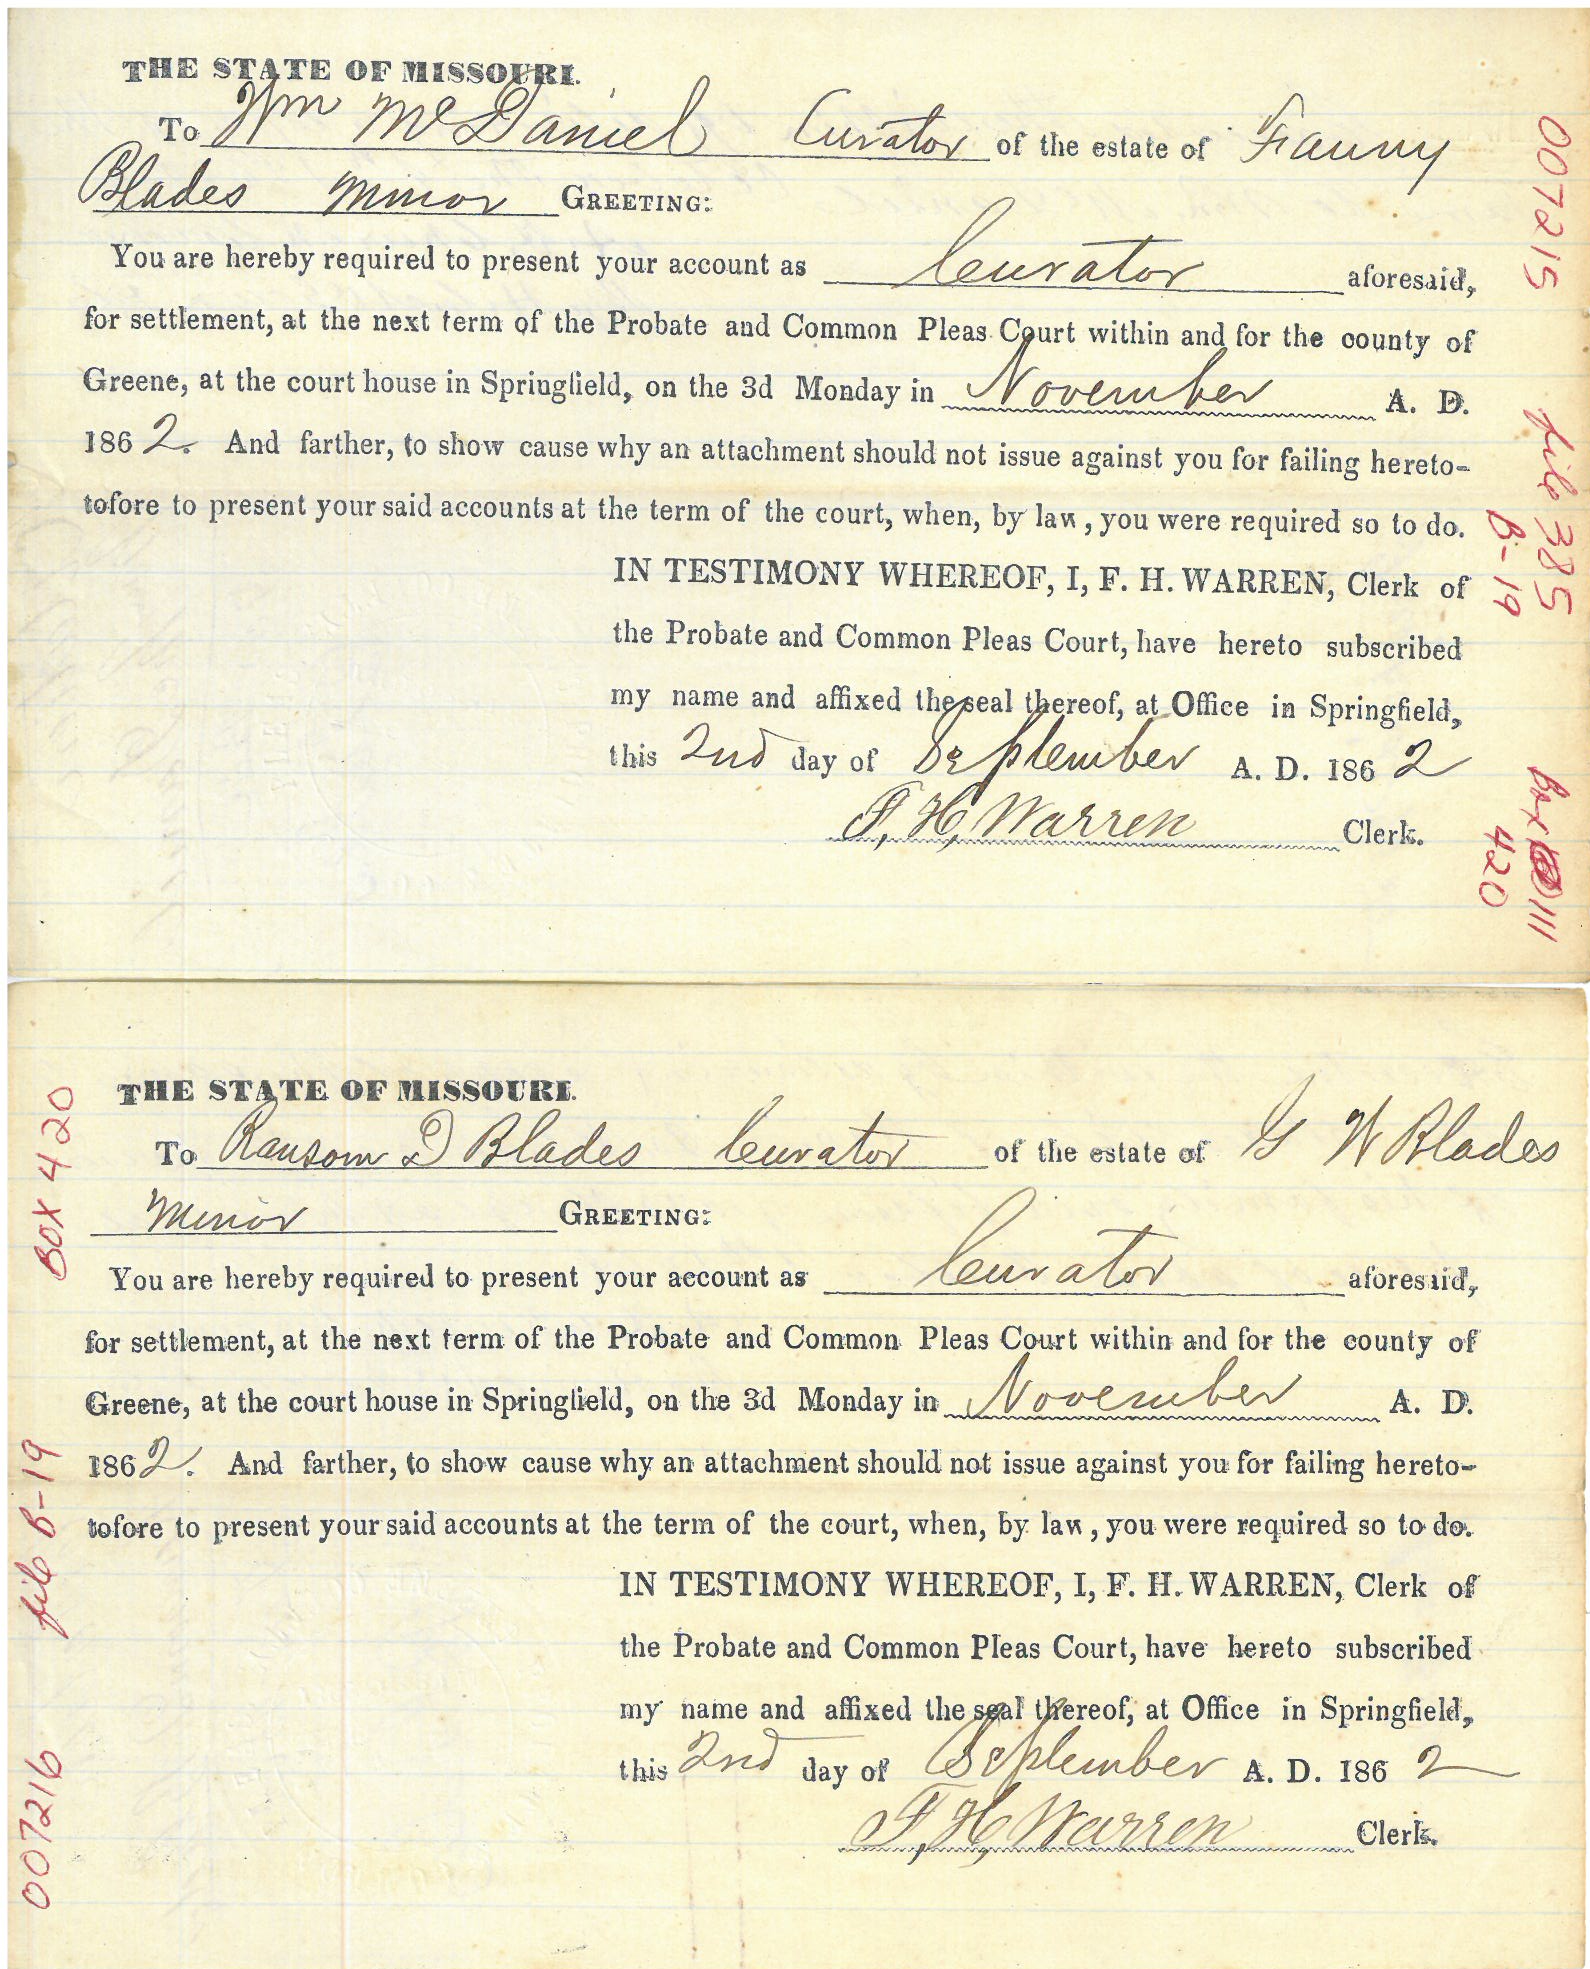 THE STATE OF MISSOURI.
To Wm McDaniel Curator of the estate of Fanny
Blades Minor GREETING:
You are hereby required to present your account as Curator aforesaid,
for settlement, at the next term of the Probate and Common Pleas Court within and for the county of
Greene, at the court house in Springfield, on the 3d Monday in November A. D.
1862. And farther, to show cause why an attachment should not issue against you for failing hereto-
tofore to present your said accounts at the term of the court, when, by law, you were required so to do.
IN TESTIMONY WHEREOF, I, F. H. WARREN, Clerk of
the Probate and Common Pleas Court, have hereto subscribed
my name and affixed the seal thereof, at Office in Springfield,
this 2nd day of September A. D. 1862
F. H. Warren Clerk.
007215
file 385
B-19
Box 111
420
THE STATE OF MISSOURI.
To Ransom D Blades Curator of the estate of G W Blades
Minor GREETING:
You are hereby required to present your account as Curator aforesaid,
for settlement, at the next term of the Probate and Common Pleas Court within and for the county of
Greene, at the court house in Springfield, on the 3d Monday in November A. D.
1862. And farther, to show cause why an attachment should not issue against you for failing hereto-
tofore to present your said accounts at the term of the court, when, by law, you were required so to do.
IN TESTIMONY WHEREOF, I, F. H. WARREN, Clerk of
the Probate and Common Pleas Court, have hereto subscribed
my name and affixed the seal thereof, at Office in Springfield,
this 2nd day of September A. D. 1862
F. H. Warren Clerk.
007216 file B-19 BOX 420